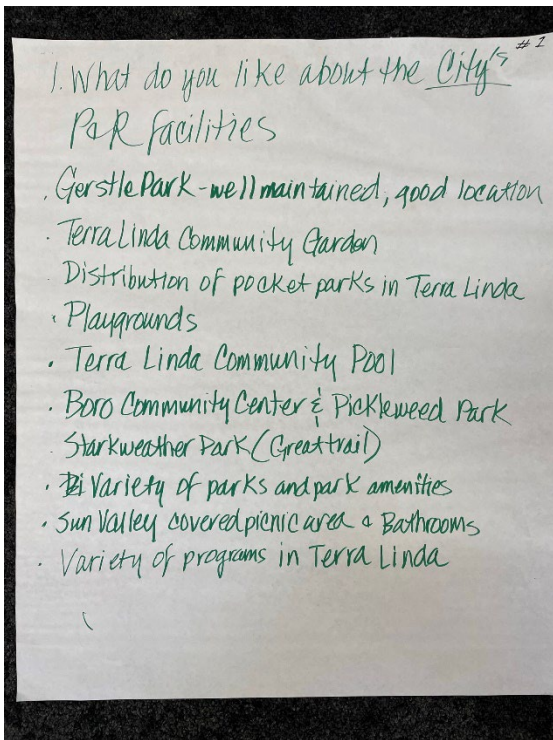 #1
1. What do you like about the City's
P&R facilities
· Gerstle Park - well maintained, good location
· Terra Linda Community Garden
· Distribution of pocket parks in Terra Linda
· Playgrounds
· Terra Linda Community Pool
· Boro Community Center & Pickleweed Park
Starkweather Park (Great trail)
· Variety of parks and park amenities
· Sun Valley covered picnic area & Bathrooms
· Variety of programs in Terra Linda